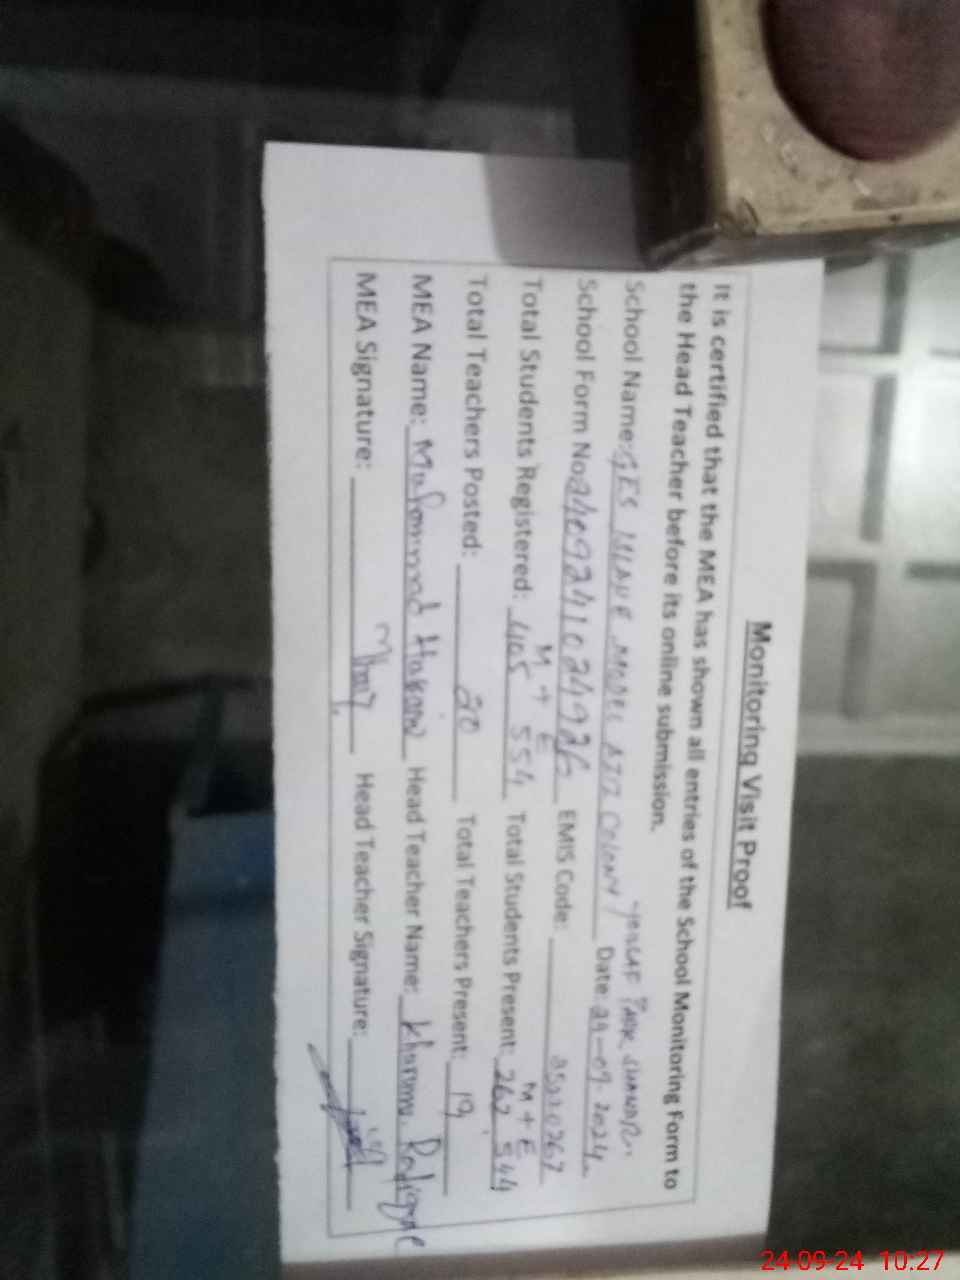 Monitoring Visit Proof
It is certified that the MEA has shown all entries of the School Monitoring Form to
the Head Teacher before its online submission.
YOUSAF PARK SHAHDRA
School Name: GES MODEL AZIZ COLONY Date: 24-09-2024
School Form No: EMIS Code: 35220767
M + E M + E
Total Students Registered: 405 554 Total Students Present: 262 544
Total Teachers Posted: 20 Total Teachers Present: 19
MEA Name: Head Teacher Name: Khurum
MEA Signature: Head Teacher Signature:
24-09-24 10:27